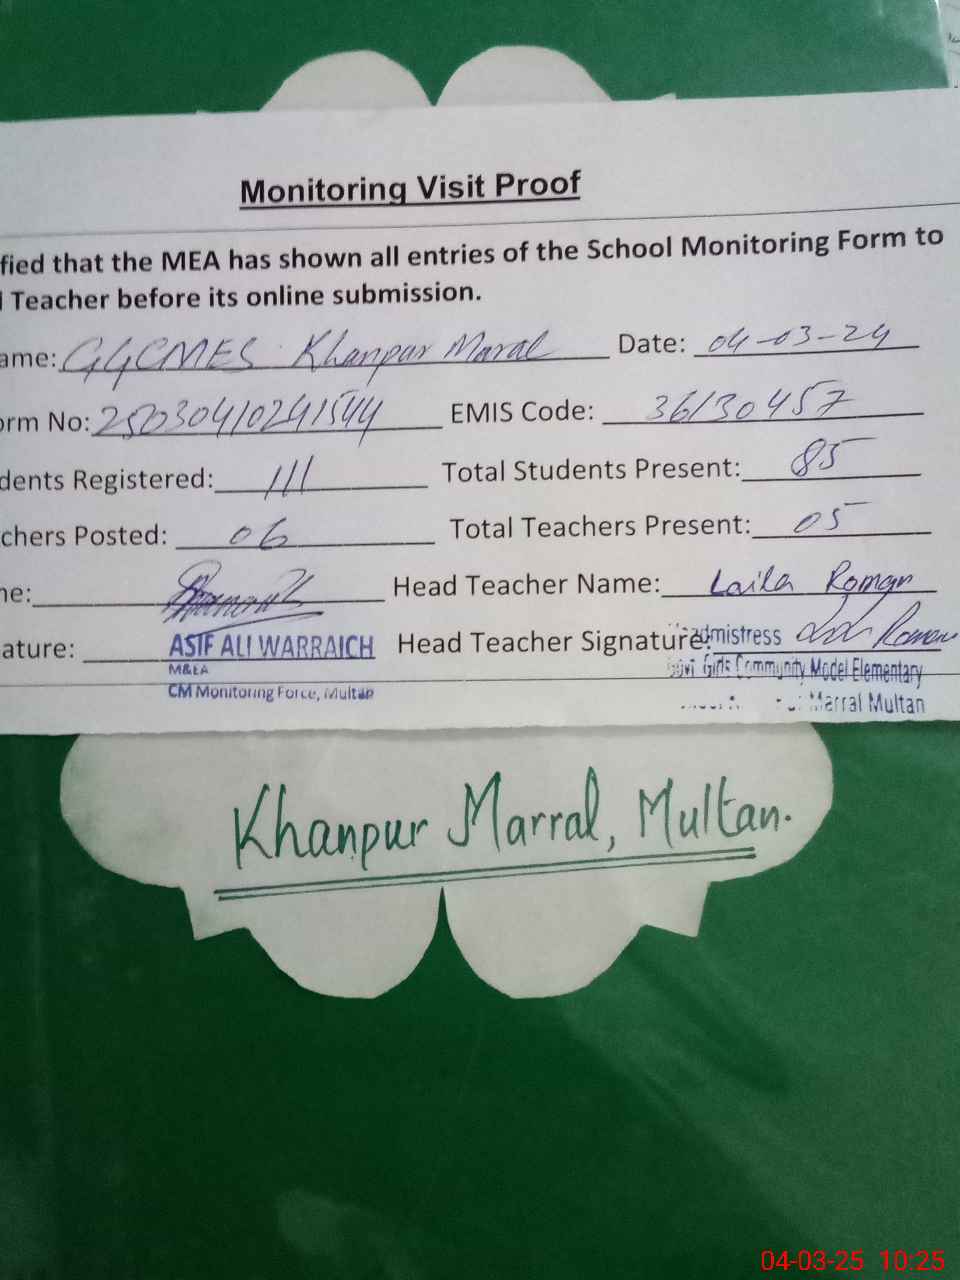 Monitoring Visit Proof
fied that the MEA has shown all entries of the School Monitoring Form to
Teacher before its online submission.
ame: GGCMES Khanpur Maral Date: 04-03-24
orm No: 25030410241544 EMIS Code: 36130457
dents Registered: 111 Total Students Present: 85
chers Posted: 06 Total Teachers Present: 05
ne: Head Teacher Name: Laila Roman
ature: ASIF ALI WARRAICH Head Teacher Signature: admistress
M&EA Girls Community Model Elementary
CM Monitoring Force, Multan Marral Multan
Khanpur Marral, Multan.
04-03-25 10:25